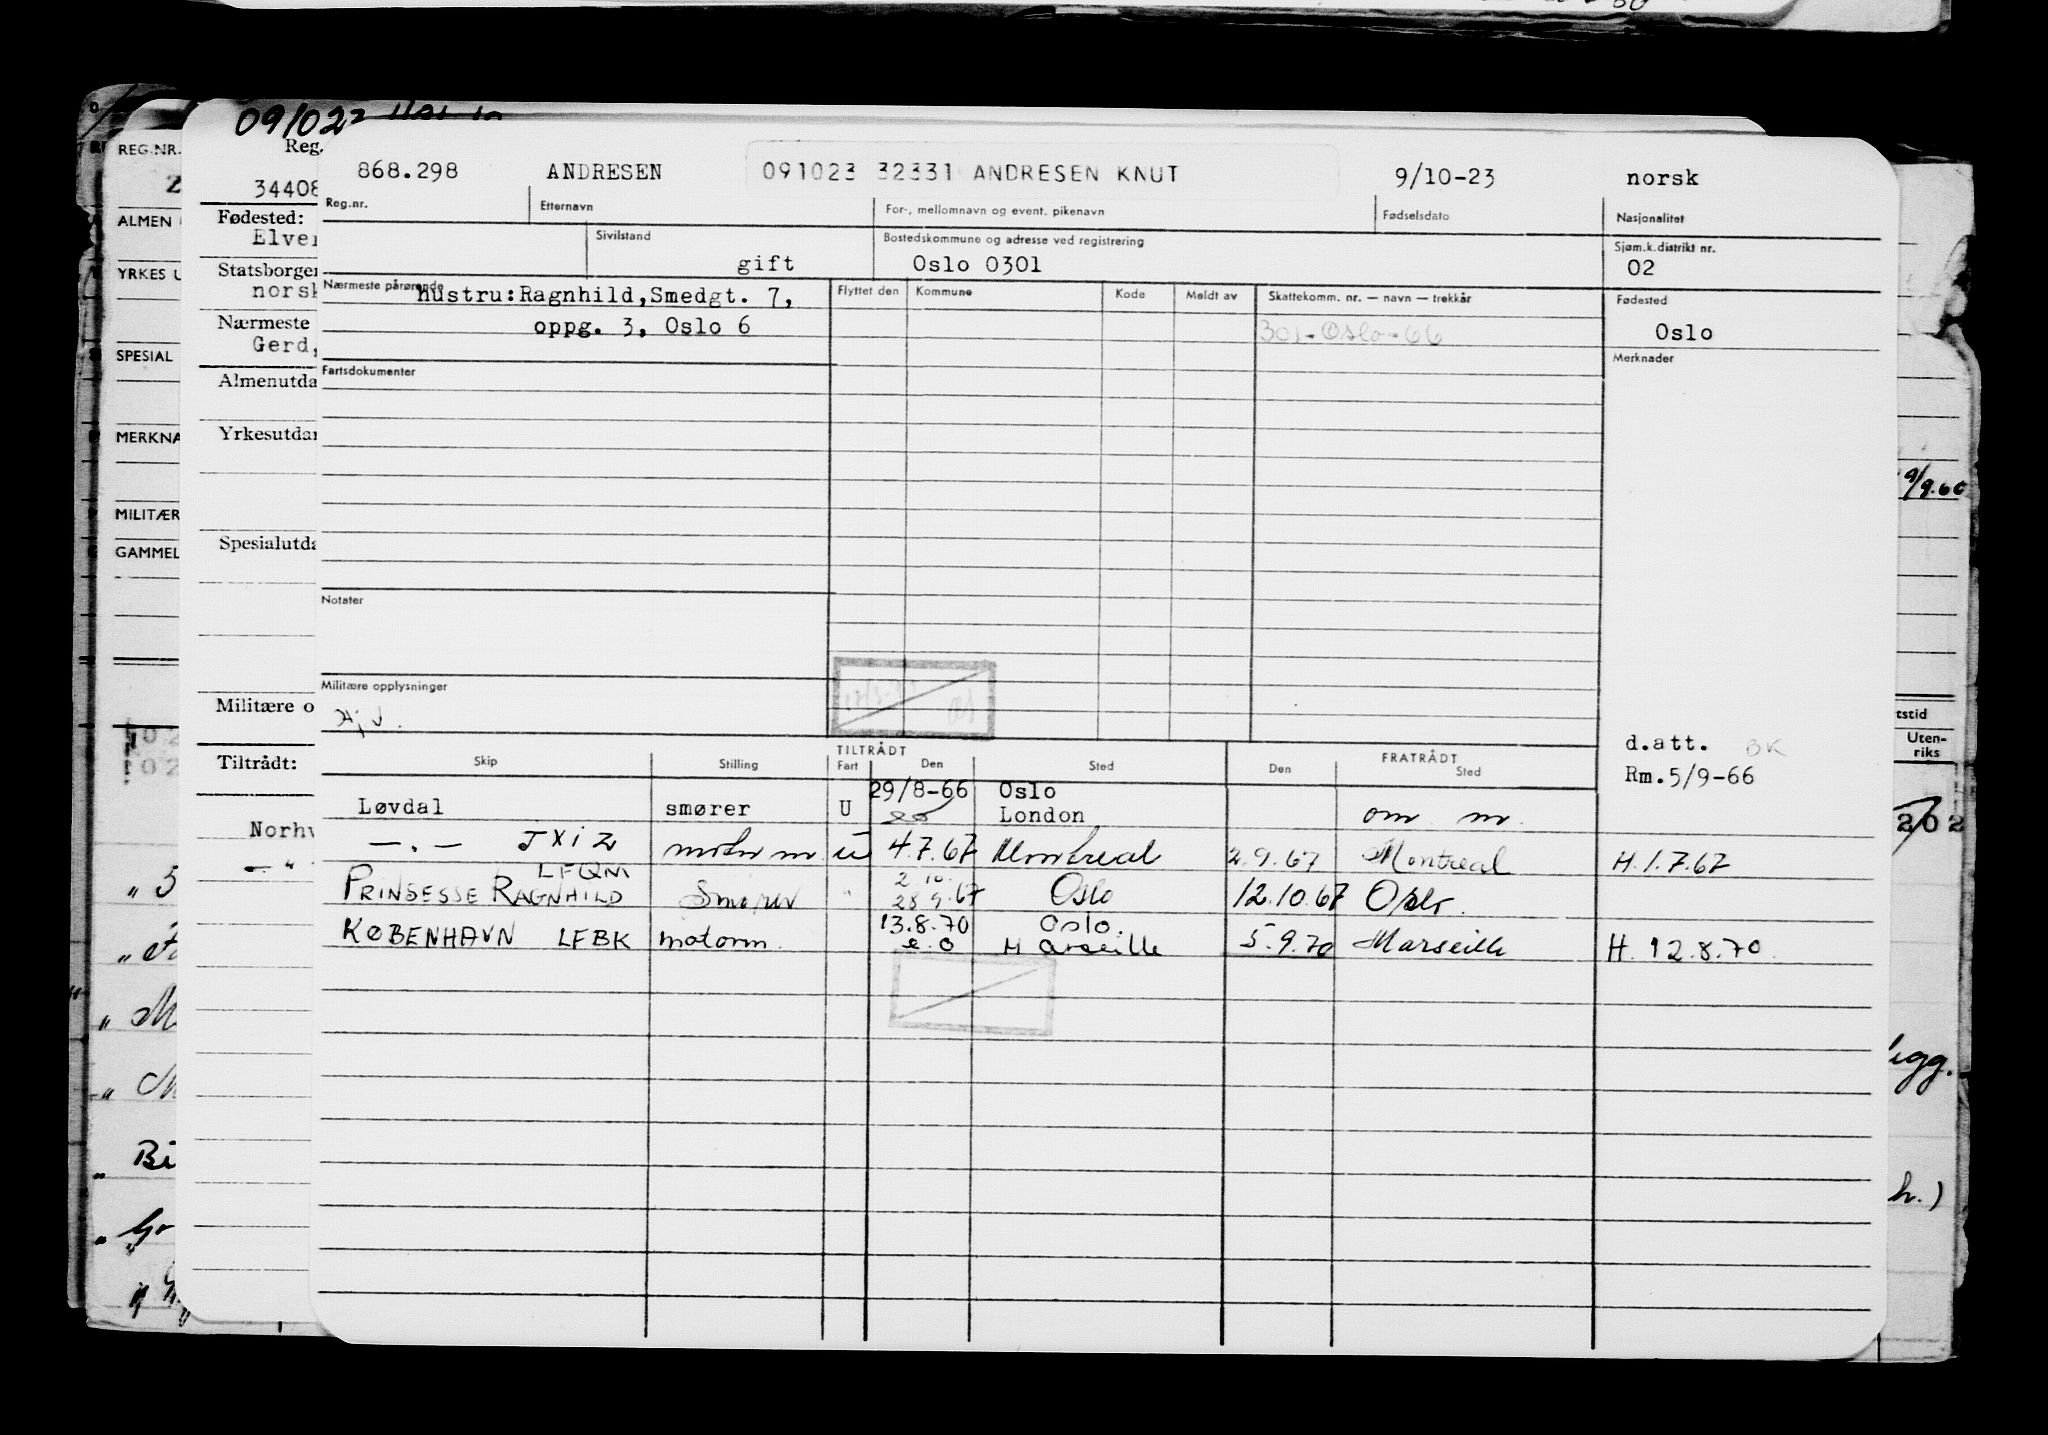 09/02
868.298 ANDRESEN 091023 32331 ANDRESEN KNUT 9/10-23 norsk
Reg.nr. Etternavn For-, mellomnavn og event. pikenavn Fødselsdato Nasjonalitet
Sivilstand Bostedskommune og adresse ved registrering Sjøm.k.distrikt nr.
gift Oslo 0301 02
Nærmeste pårørende Hustru:Ragnhild,Smedgt. 7, Flyttet den Kommune Kode Meldt av Skattekomm. nr. — navn — trekkår Fødested
oppg. 3, Oslo 6 301-Oslo-66 Oslo
Fartsdokumenter Merknader
Notater
Militære opplysninger
d.att. BK
Rm.5/9-66
TILTRÅDT FRATRÅDT
Skip Stilling Fart Den Sted Den Sted
29/8-66 Oslo
Løvdal smører U London om m.
—.— JXIZ motorm. u 4.7.67 Montreal 2.9.67 Montreal H.1.7.67
LFQM 2 10.
PRINSESSE RAGNHILD Smører " 28 9.67 Oslo 12.10.67 Oslo.
13.8.70 Oslo.
KØBENHAVN LFBK motorm. Marseille 5.9.70 Marseille H. 12.8.70.
REG.NR.
ALMEN
YRKES U
SPESIAL
MERKNA
MILITÆR
GAMMEL
Reg.
34408
Fødested:
Elver
Statsborger
norsk
Nærmeste
Gerd,
Almenutda
Yrkesutdan
Spesialutda
Militære o
Tiltrådt:
Norhv
9/9.60
tstid
Uten-
riks
202
igg.
h.)